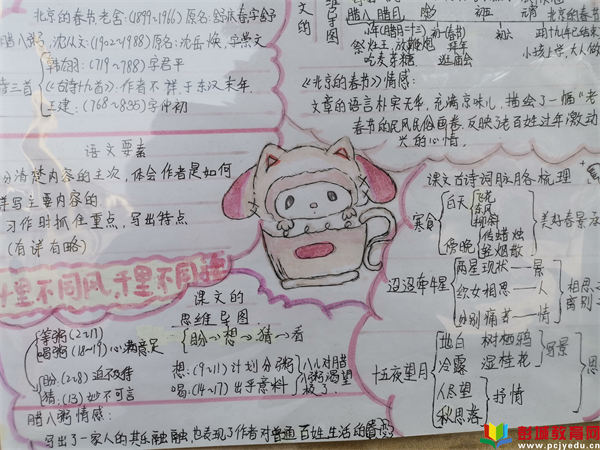 北京的春节 老舍:(1899~1966)原名:舒庆春字舍予
腊八粥 沈从文:(1902~1988)原名:沈岳焕,字崇文
韩翃:(719~788)字君平
诗三首 《古诗十九首》:作者不祥于东汉末年
王建:(768~835)字仲初
语文要素
分清楚内容的主次,体会作者是如何
详写主要内容的
习作时抓住重点,写出特点
(有详有略)
十里不同风,千里不同俗
维导图
腊八 腊月 除夕 初一 元宵 北京的春节
小年(腊月二十三) 初一(春节) 十九(年已结束)
祭灶王 放鞭炮 拜年
吃麦芽糖 逛庙会
小孩上学,大人做
《北京的春节》情感:
文章的语言朴实无华,充满京味儿,描绘了一幅“老
春节的民风民俗画卷,反映了老百姓过年激动
兴的心情。
课文古诗词脉络梳理
寒食
白天
飞花
东风
柳斜
傍晚
传蜡烛
轻烟散
美好春景
迢迢牵牛星
两星现状——景
织女相思——人
分别痛苦——情
相思
离别
十五夜望月
地白 树栖鸦
冷露 湿桂花
写景
人尽望
秋思落
抒情
思
课文的
思维导图
盼→想→猜→看
等粥(2~17)
喝粥(18~19)心满意足
盼:(2~8)迫不及待
想:(9~11)计划分粥
猜:(13)妙不可言
喝:(14~17)出乎意料
八儿对腊
八粥渴望
极了.
腊八粥情感:
写出了一家人的其乐融融,也表现了作者对普通百姓生活的赞
彭城教育网
www.pcjyedu.cn